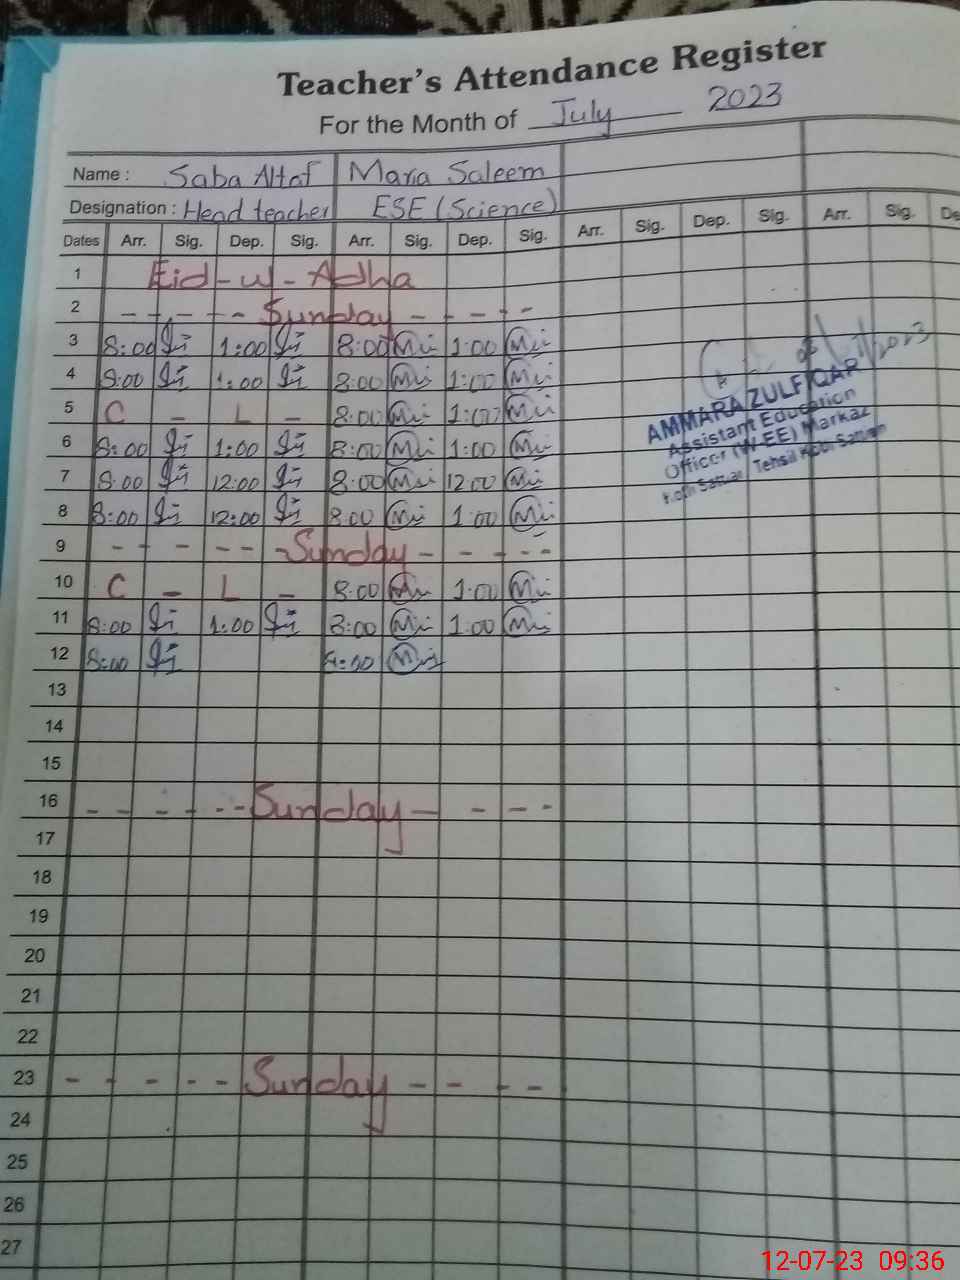 Teacher's Attendance Register
For the Month of July 2023
Name : Saba Altaf Maria Saleem
Designation : Head teacher ESE (Science)
Dates Arr. Sig. Dep. Sig. Arr. Sig. Dep. Sig. Arr. Sig. Dep. Sig. Arr. Sig. De
1 Eid-ul-Adha
2 - - - - - Sunday - - - -
3 8:00 1:00 8:00 1:00
4 8:00 1:00 8:00 1:00
5 C - L - 8:00 1:00
6 8:00 1:00 8:00 1:00
7 8:00 12:00 8:00 12:00
8 8:00 12:00 8:00 1:00
9 - - - - - Sunday - - - -
10 C - L - 8:00 1:00
11 8:00 1:00 8:00 1:00
12 8:00
13
14
15
16 - - - - - - Sunday - - - -
17
18
19
20
21
22
23 - - - - - Sunday - - - -
24
25
26
27
AMMARA ZULFIQAR
Assistant Education
Officer (W-EE) Markaz
Kotli Sattian Tehsil Kotli Sattian
12-07-23 09:36